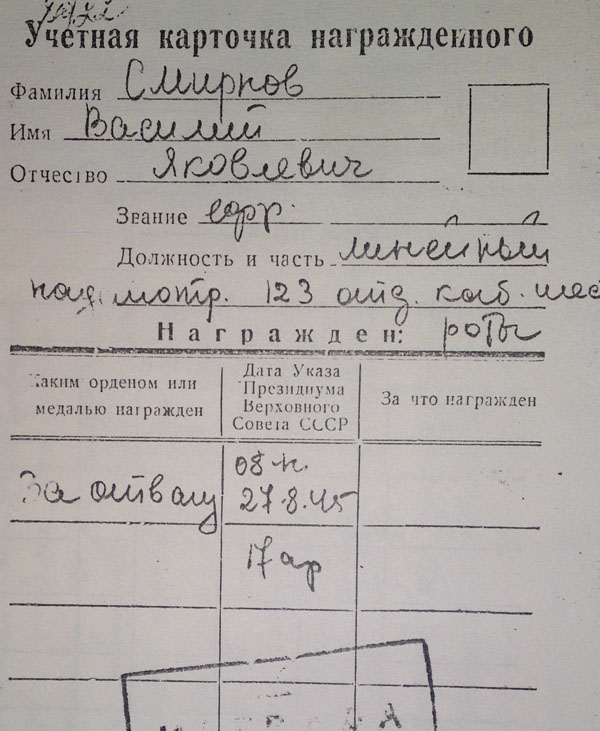 Учетная карточка награжденного
Фамилия Смирнов
Имя Василий
Отчество Яковлевич
Звание ефр.
Должность и часть линейный
надсмотр. 123 отд. каб. шес
роты
Награжден:
Каким орденом или медалью награжден
Дата Указа Президиума Верховного Совета СССР
За что награжден
За отвагу
08-н.
27.8.45
17 ар